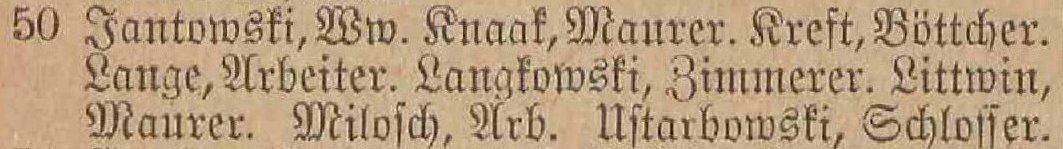 50 Jantowski, Ww. Knaak, Maurer. Kreft, Böttcher.
Lange, Arbeiter. Langkowski, Zimmerer. Littwin,
Maurer. Milosch, Arb. Ustarbowski, Schlosser.